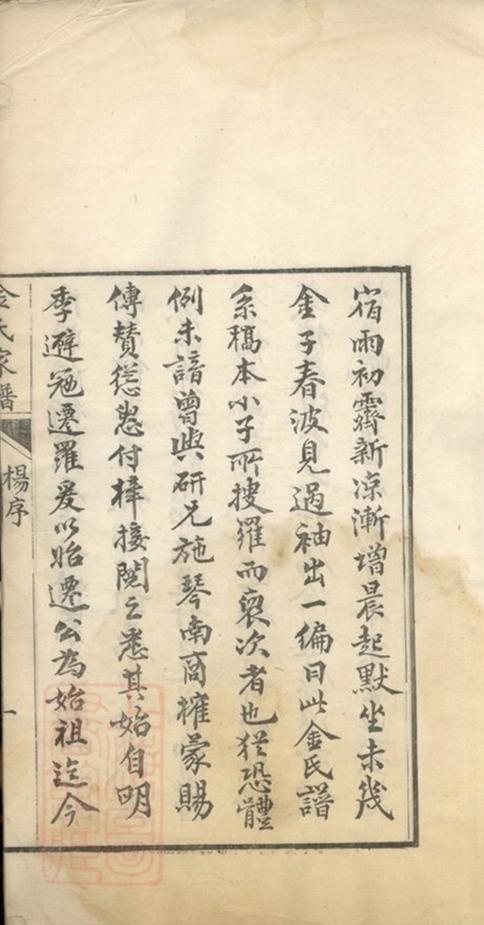 宿雨初霽新凉漸增晨起默坐未幾
金子春波見過袖出一編曰此金氏譜
系稿本小子所搜羅而裒次者也猶恐體
例未諳曾與研兄施琴南商榷蒙賜
傳贊慫恿付梓接閱之悉其始自明
季避冦遷羅爰以始遷公為始祖迄今
金氏家譜
楊序
一